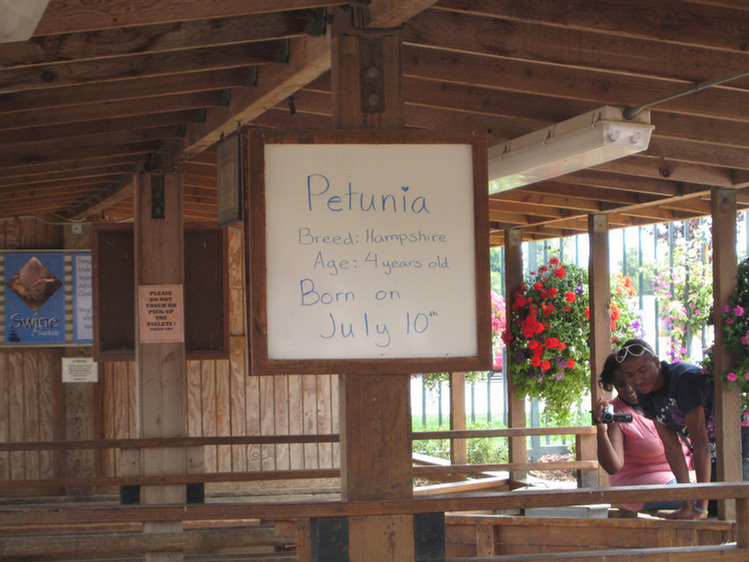 Petunia
Breed: Hampshire
Age: 4 years old
Born on
July 10th
PLEASE
DO NOT
TOUCH OR
PICK-UP
THE
PIGLETS!
Swine